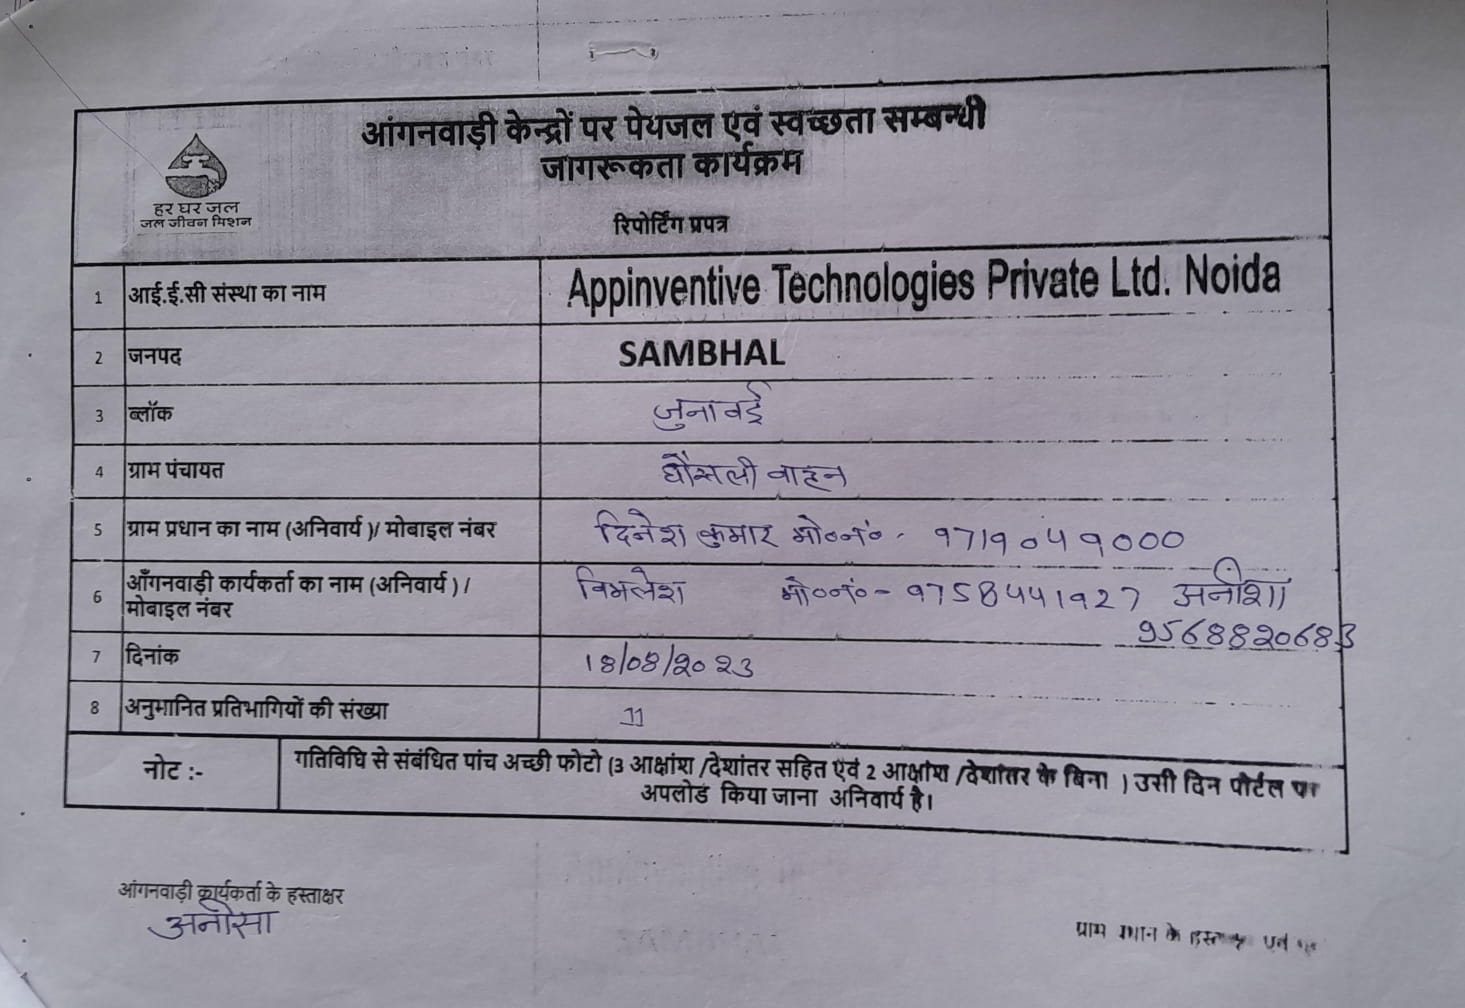 आंगनवाड़ी केन्द्रों पर पेयजल एवं स्वच्छता सम्बन्धी
जागरूकता कार्यक्रम
हर घर जल
जल जीवन मिशन
रिपोर्टिंग प्रपत्र
1 आई.ई.सी संस्था का नाम Appinventive Technologies Private Ltd. Noida
2 जनपद SAMBHAL
3 ब्लॉक जुनावई
4 ग्राम पंचायत घौसली वाहन
5 ग्राम प्रधान का नाम (अनिवार्य )/ मोबाइल नंबर दिनेश कुमार मो०नं० - 9719049000
6 आँगनवाड़ी कार्यकर्ता का नाम (अनिवार्य ) / विमलेश मो०नं० - 9758441927 अनीशा
मोबाइल नंबर 9568820683
7 दिनांक 18/08/2023
8 अनुमानित प्रतिभागियों की संख्या 11
नोट :- गतिविधि से संबंधित पांच अच्छी फोटो (3 आक्षांश /देशांतर सहित एवं 2 आक्षांश /देशांतर के बिना ) उसी दिन पोर्टल पर
अपलोड किया जाना अनिवार्य है।
आंगनवाड़ी कार्यकर्ता के हस्ताक्षर
अनीसा
ग्राम के